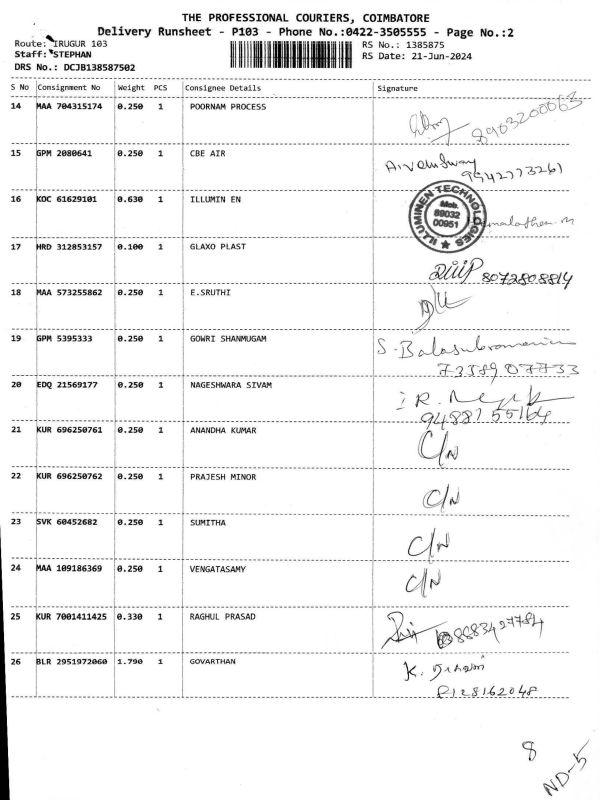 THE PROFESSIONAL COURIERS, COIMBATORE
Delivery Runsheet - P103 - Phone No.:0422-3505555 - Page No.:2
Route: IRUGUR 103
RS No.: 1385875
Staff: STEPHAN
RS Date: 21-Jun-2024
DRS No.: DCJB138587502
S No Consignment No Weight PCS Consignee Details Signature
14 MAA 704315174 0.250 1 POORNAM PROCESS
8903200063
15 GPM 2080641 0.250 1 CBE AIR
9942773261
16 KOC 61629101 0.630 1 ILLUMIN EN
ILLUMINEN TECHNOLOGIES
Mob.
89032
00951
17 HRD 312853157 0.100 1 GLAXO PLAST
8072808814
18 MAA 573255862 0.250 1 E.SRUTHI
19 GPM 5395333 0.250 1 GOWRI SHANMUGAM
S. Balasubramanian
20 EDQ 21569177 0.250 1 NAGESHWARA SIVAM
21 KUR 696250761 0.250 1 ANANDHA KUMAR
C/N
22 KUR 696250762 0.250 1 PRAJESH MINOR
C/N
23 SVK 60452682 0.250 1 SUMITHA
C/N
24 MAA 109186369 0.250 1 VENGATASAMY
C/N
25 KUR 7001411425 0.330 1 RAGHUL PRASAD
8883427784
26 BLR 2951972060 1.790 1 GOVARTHAN
8128162048
8
ND-5